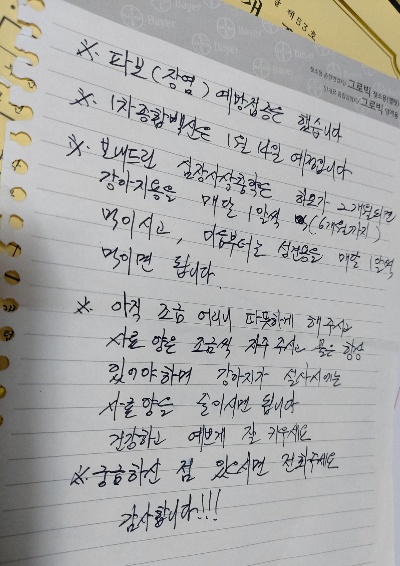 제 53호
Bayer Bayer Bayer
그로빅
그로빅
※. 파보(장염) 예방접종은 했습니다
※. 1차종합백신은 1월 14일 예정입니다
※. 보내드린 심장사상충약은 하모가 2개월되면
강아지용을 매달 1알씩 (6개월까지)
먹이시고, 다음부터는 성견용을 매달 1알씩
먹이면 됩니다.
※. 아직 조금 어리니 따뜻하게 해주시고
사료 양은 조금씩 자주 주시고 물은 항상
있어야하며 강아지가 설사시에는
사료양을 줄이시면 됩니다
건강하고 예쁘게 잘 키우세요
※. 궁금하신 점 있으시면 전화주세요
감사합니다!!!